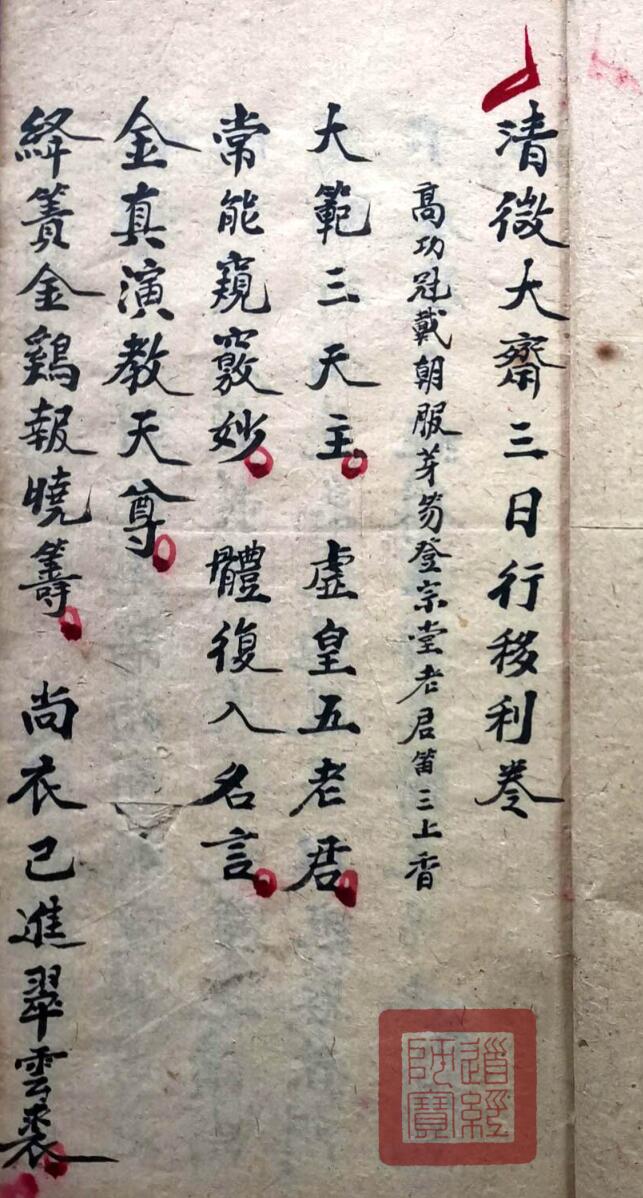 清微大齋三日行移利巻
高功冠戴朝服芽笏登宗堂老君笛三上香
大範三天主 虚皇五老君
常能窺竅妙 體復入名言
金真演教天尊
絳簀金鷄報曉籌 尚衣已進翠雲裘
道經師寶